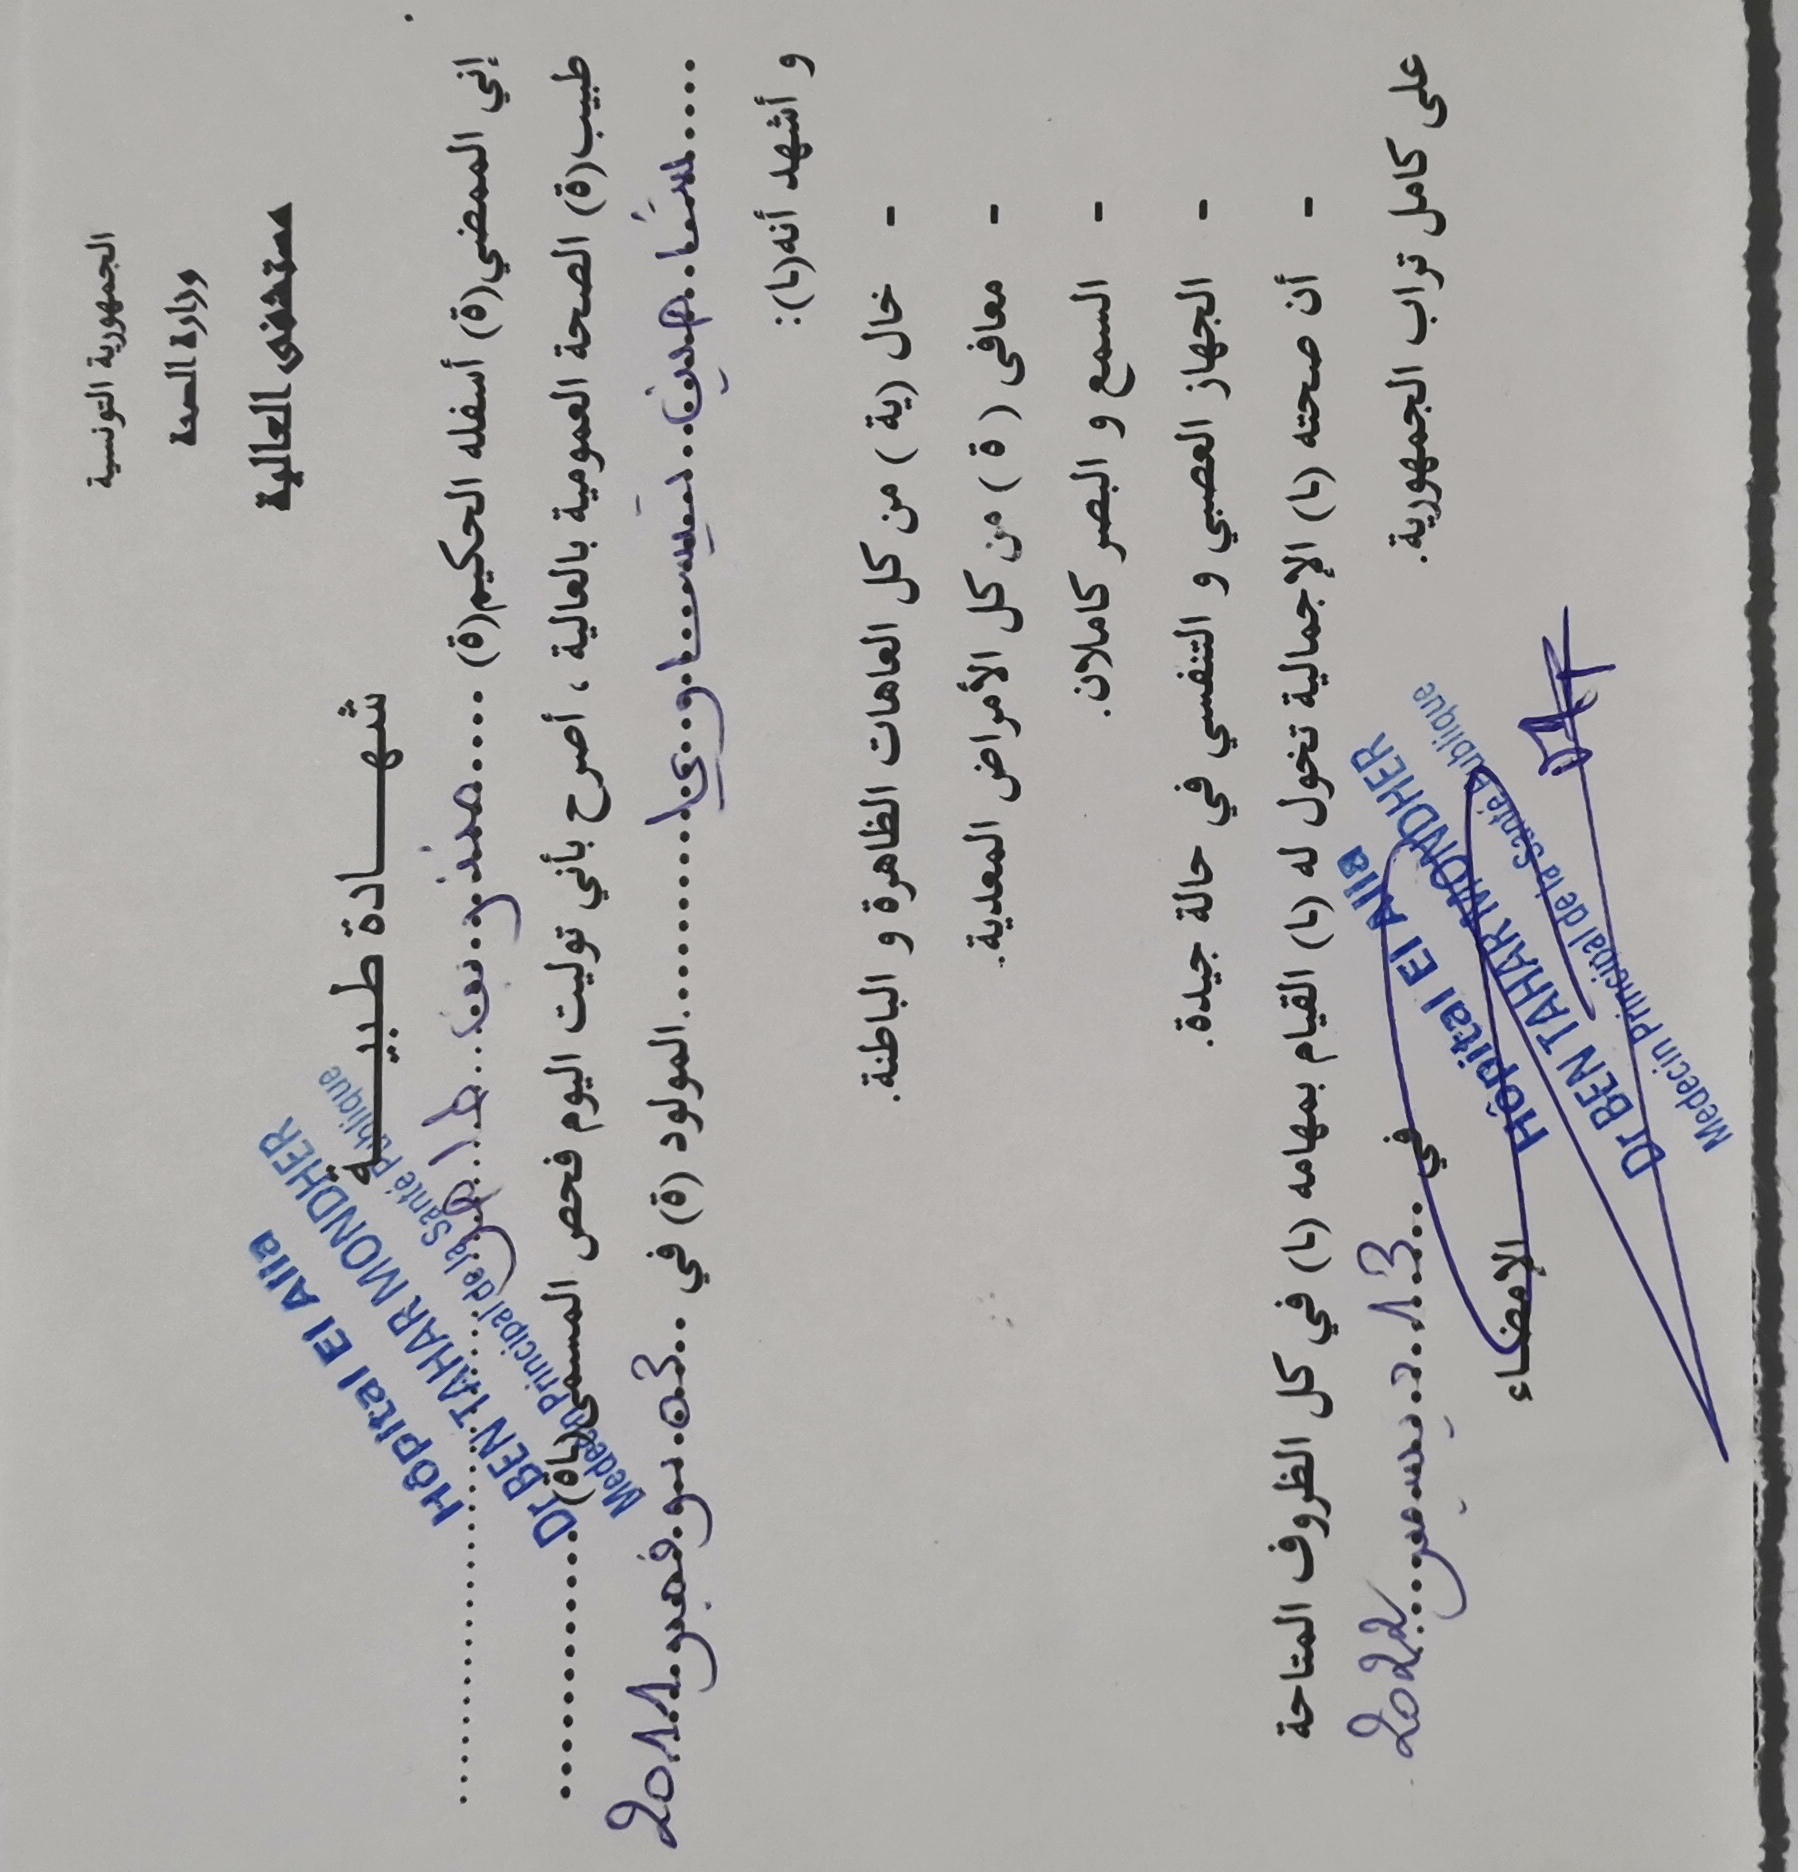 الجمهورية التونسية
وزارة الصحة
مستشفى العالية
شهـــــادة طبيـــــة
Hôpital El Alia
Dr BEN TAHAR MONDHER
Medecin Principal de la Santé Publique
إني الممضي(ة) أسفله الحكيم(ة) ..... منذر بن طاهر .....
طبيب(ة) الصحة العمومية بالعالية ، أصرح بأني توليت اليوم فحص المسمى(اة) ............
..... عيساوي ............ المولود (ة) في ..... 03 نوفمبر 2011
و أشهد أنه(ا):
- خال (ية ) من كل العاهات الظاهرة و الباطنة.
- معافى ( ة ) من كل الأمراض المعدية.
- السمع و البصر كاملان.
- الجهاز العصبي و التنفسي في حالة جيدة.
- أن صحته (ا) الإجمالية تخول له (ا) القيام بمهامه (ا) في كل الظروف المتاحة
على كامل تراب الجمهورية.
في ..... 13 ديسمبر 2022
الإمضاء
Hôpital El Alia
Dr BEN TAHAR MONDHER
Medecin Principal de la Santé Publique